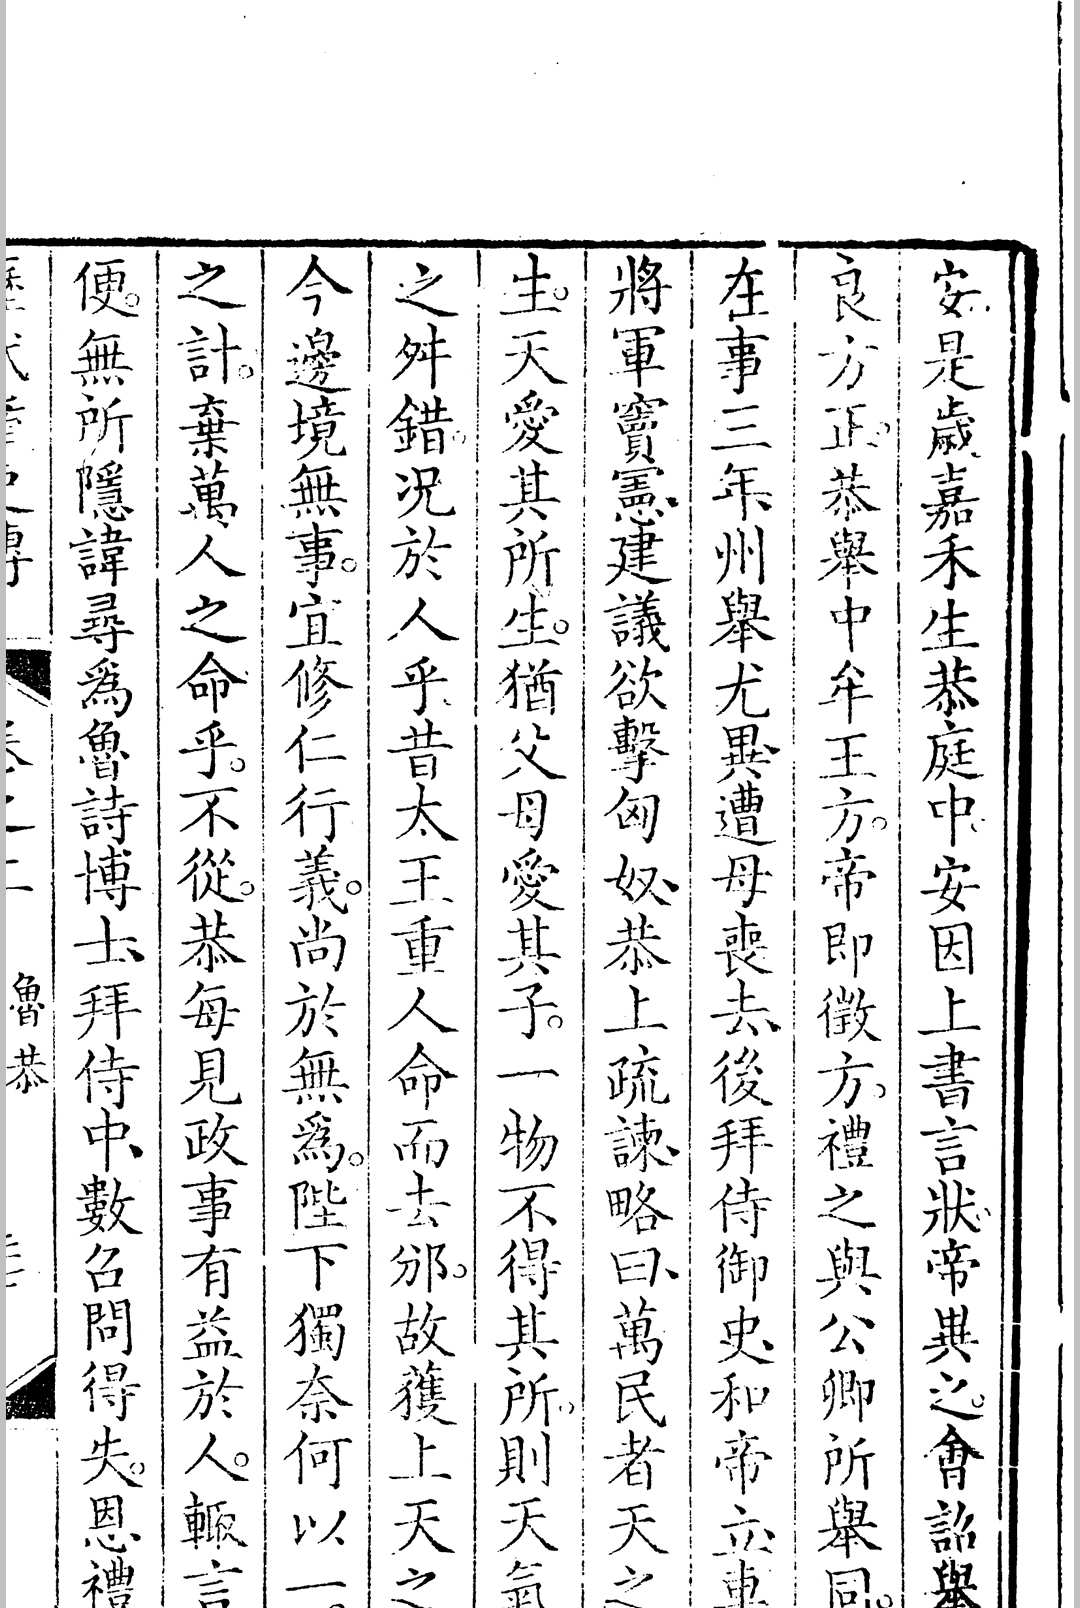 安是歲嘉禾生恭庭中安因上書言狀帝異之會詔舉
良方正恭舉中牟王方帝即徵方禮之與公卿所舉同
在事三年州舉尤異遭母喪去後拜侍御史和帝立車
將軍竇憲建議欲擊匈奴恭上疏諫略曰萬民者天之
生天愛其所生猶父母愛其子一物不得其所則天氣
之舛錯况於人乎昔太王重人命而去邠故獲上天之
今邊境無事宜修仁行義尚於無爲陛下獨奈何以一
之計棄萬人之命乎不從恭每見政事有益於人輒言
便無所隱諱尋爲魯詩博士拜侍中數召問得失恩禮
魯恭